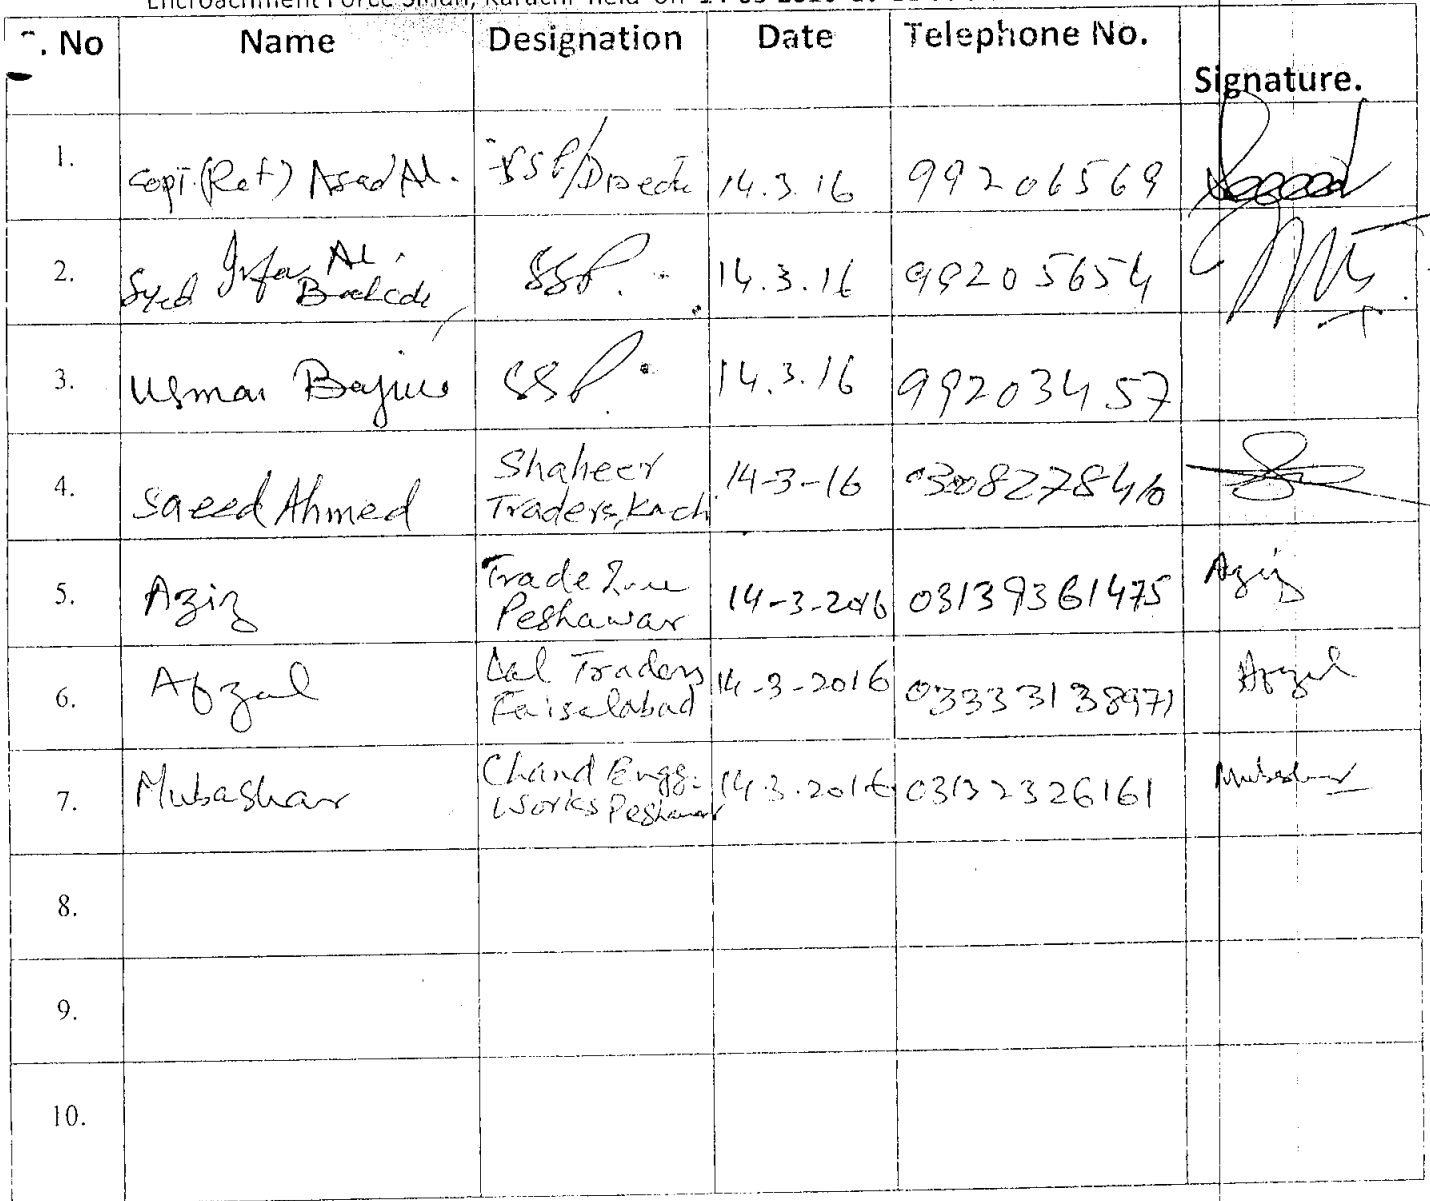 Encroachment Force Sindh, Karachi held on 14-03-2016 at
. No Name Designation Date Telephone No. Signature.
1. Capt.(Ret) Asad Al. SSP/Directi 14.3.16 99206569
2. Syed Irfa Al. Bahade SSP. 14.3.16 99205654
3. Usman Bajwa SSP. 14.3.16 99203457
4. Saeed Ahmed Shaheer Traders, Kachi 14-3-16
5. Aziz Trade Zone Peshawar 14-3-2016 03139361475 Aziz
6. Afzal Lal Traders Faisalabad 14-3-2016 03333138971 Afzal
7. Mubashar Chand Engg. Works Peshawar 14.3.2016 03132326161 Mubashar
8.
9.
10.